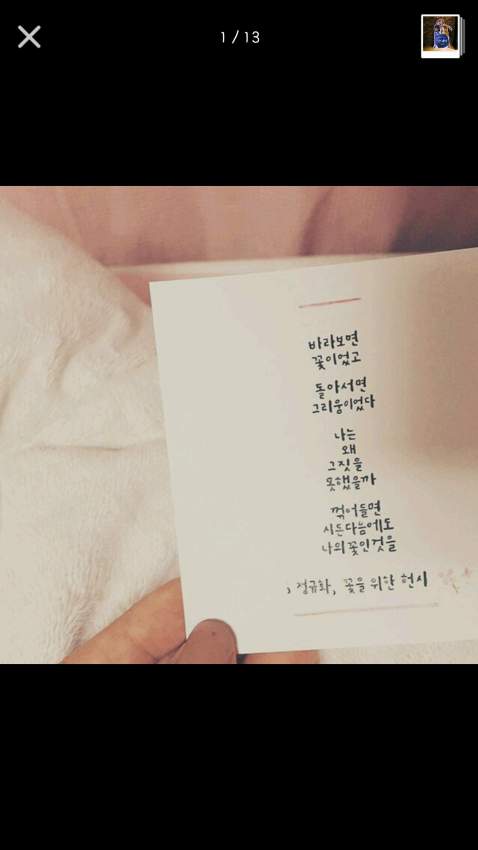 1 / 13
바라보면
꽃이었고
돌아서면
그리움이었다
나는
왜
그짓을
못했을까
꺾어들면
시든다음에도
나의꽃인것을
; 정규화, 꽃을 위한 헌시